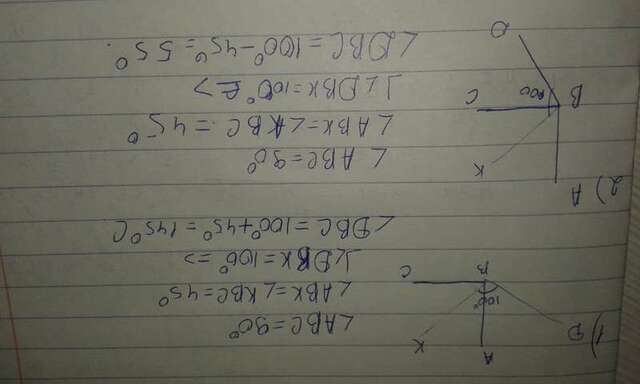 1)
A
K
D
100°
B
C
∠ABC=90°
∠ABK=∠KBC=45°
⅃∠DBK=100° =>
∠DBC=100°+45°=145°C
2)
A
K
B
100
C
D
∠ABC=90°
∠ABK=∠KBC.=45°
⅃∠DBK=100° =>
∠DBC=100°-45°=55°.